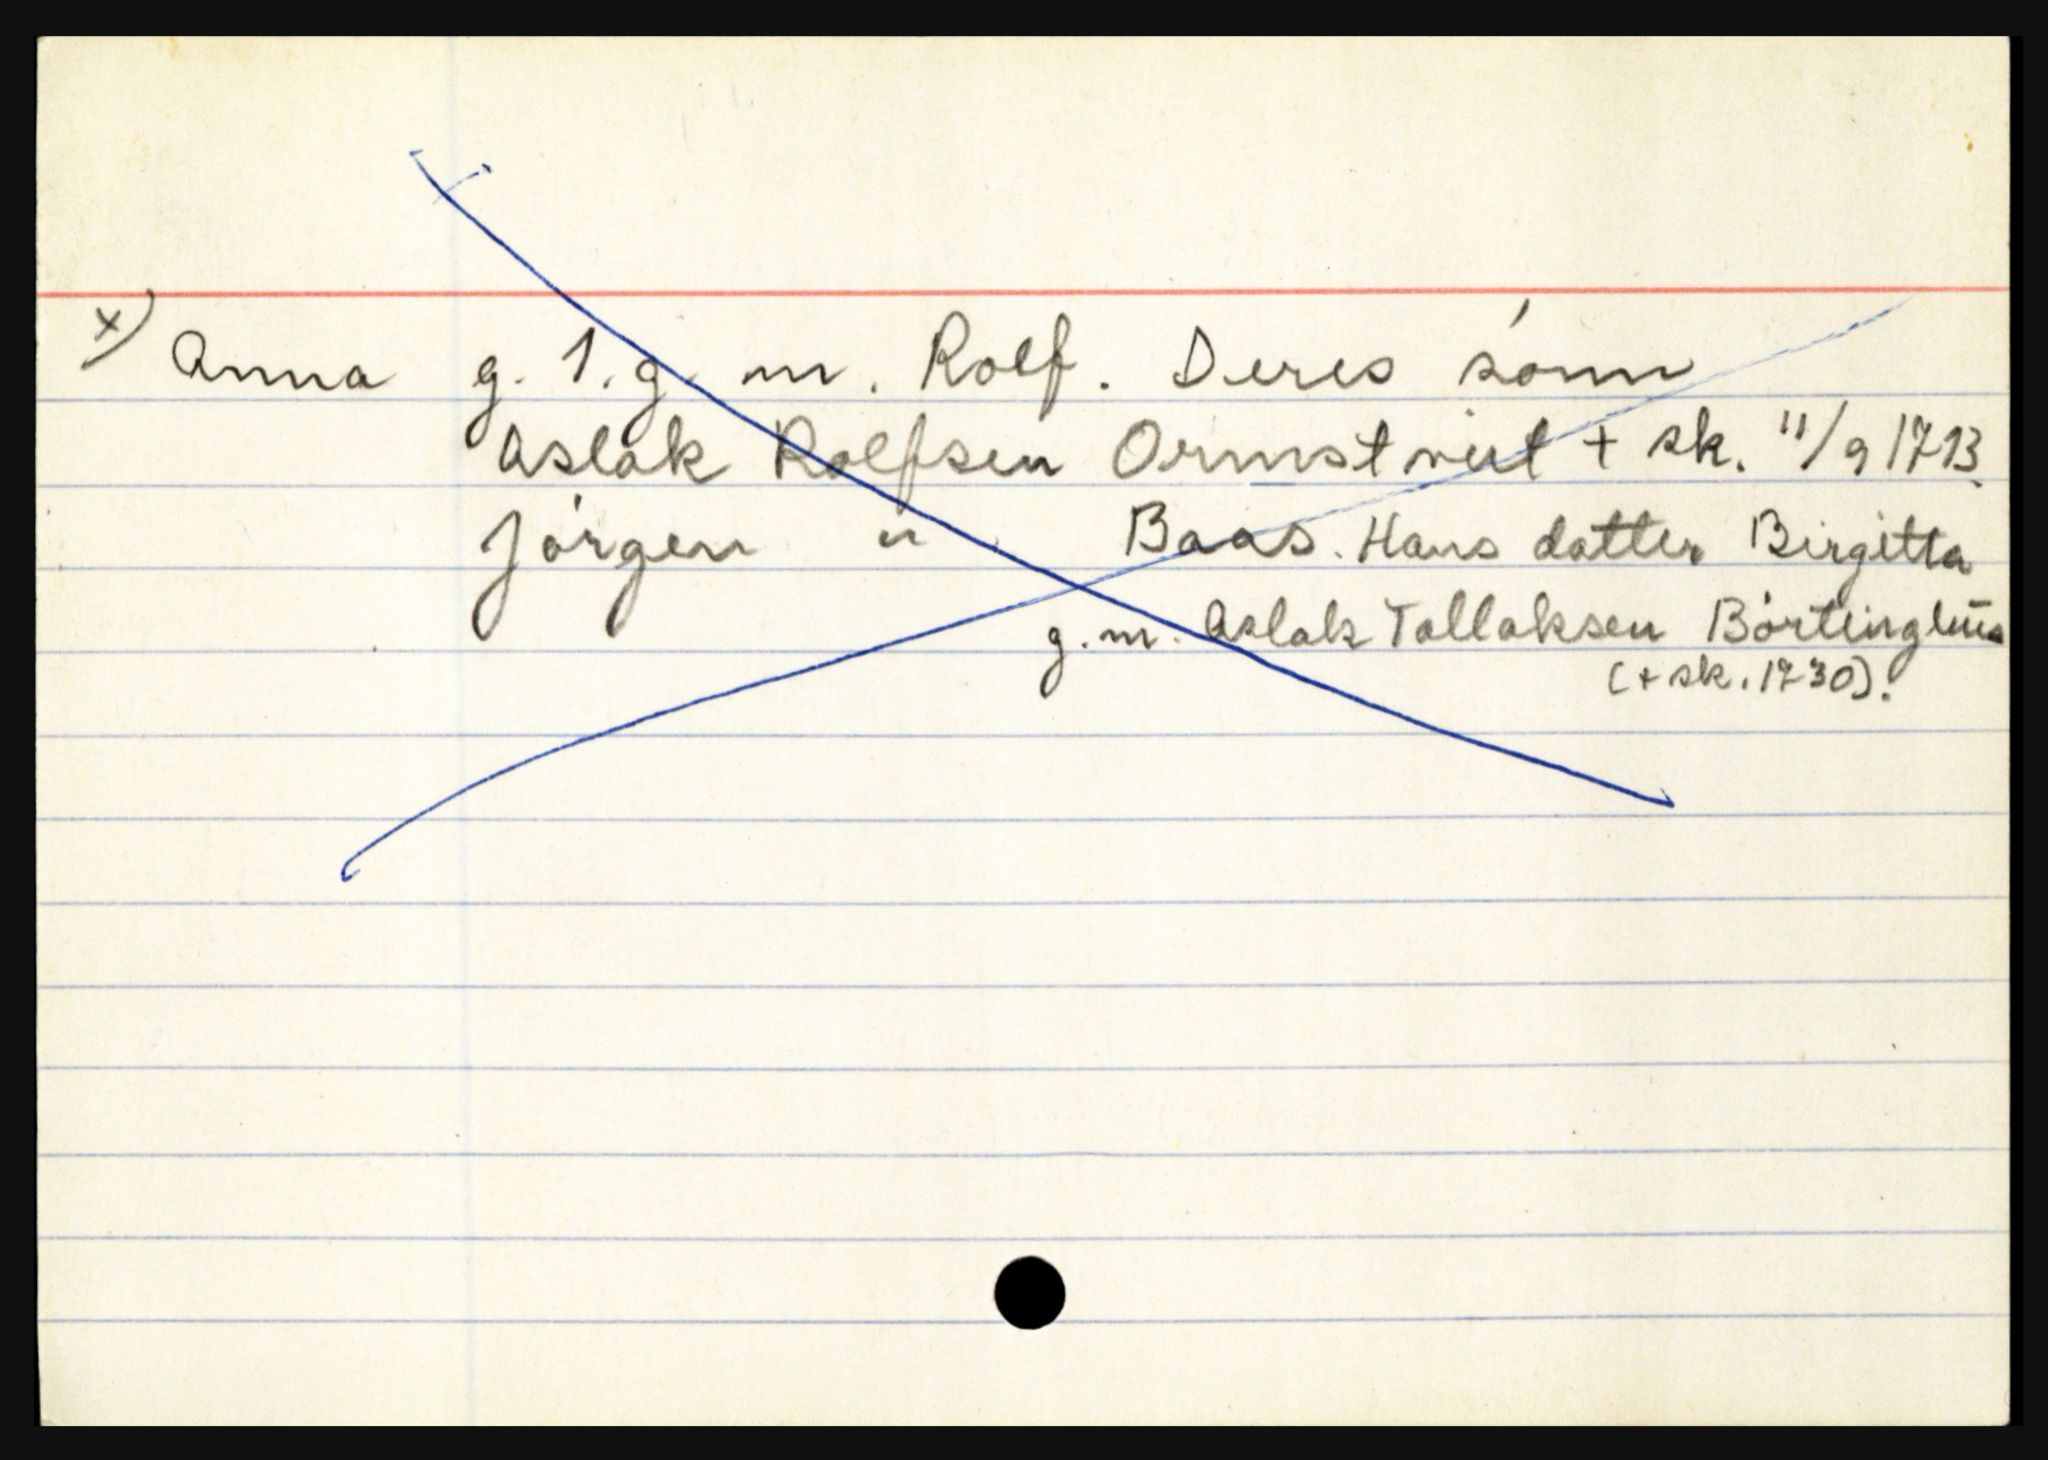 x) Anna g. 1. g. m. Rolf. Deres sónn
Aslak Rolfsen Ormstveit + sk. 11/9 1713.
Jórgen " Baas. Hans datter Birgitta
g. m. Aslak Tallaksen Bórtinghus
(+ sk. 1730).